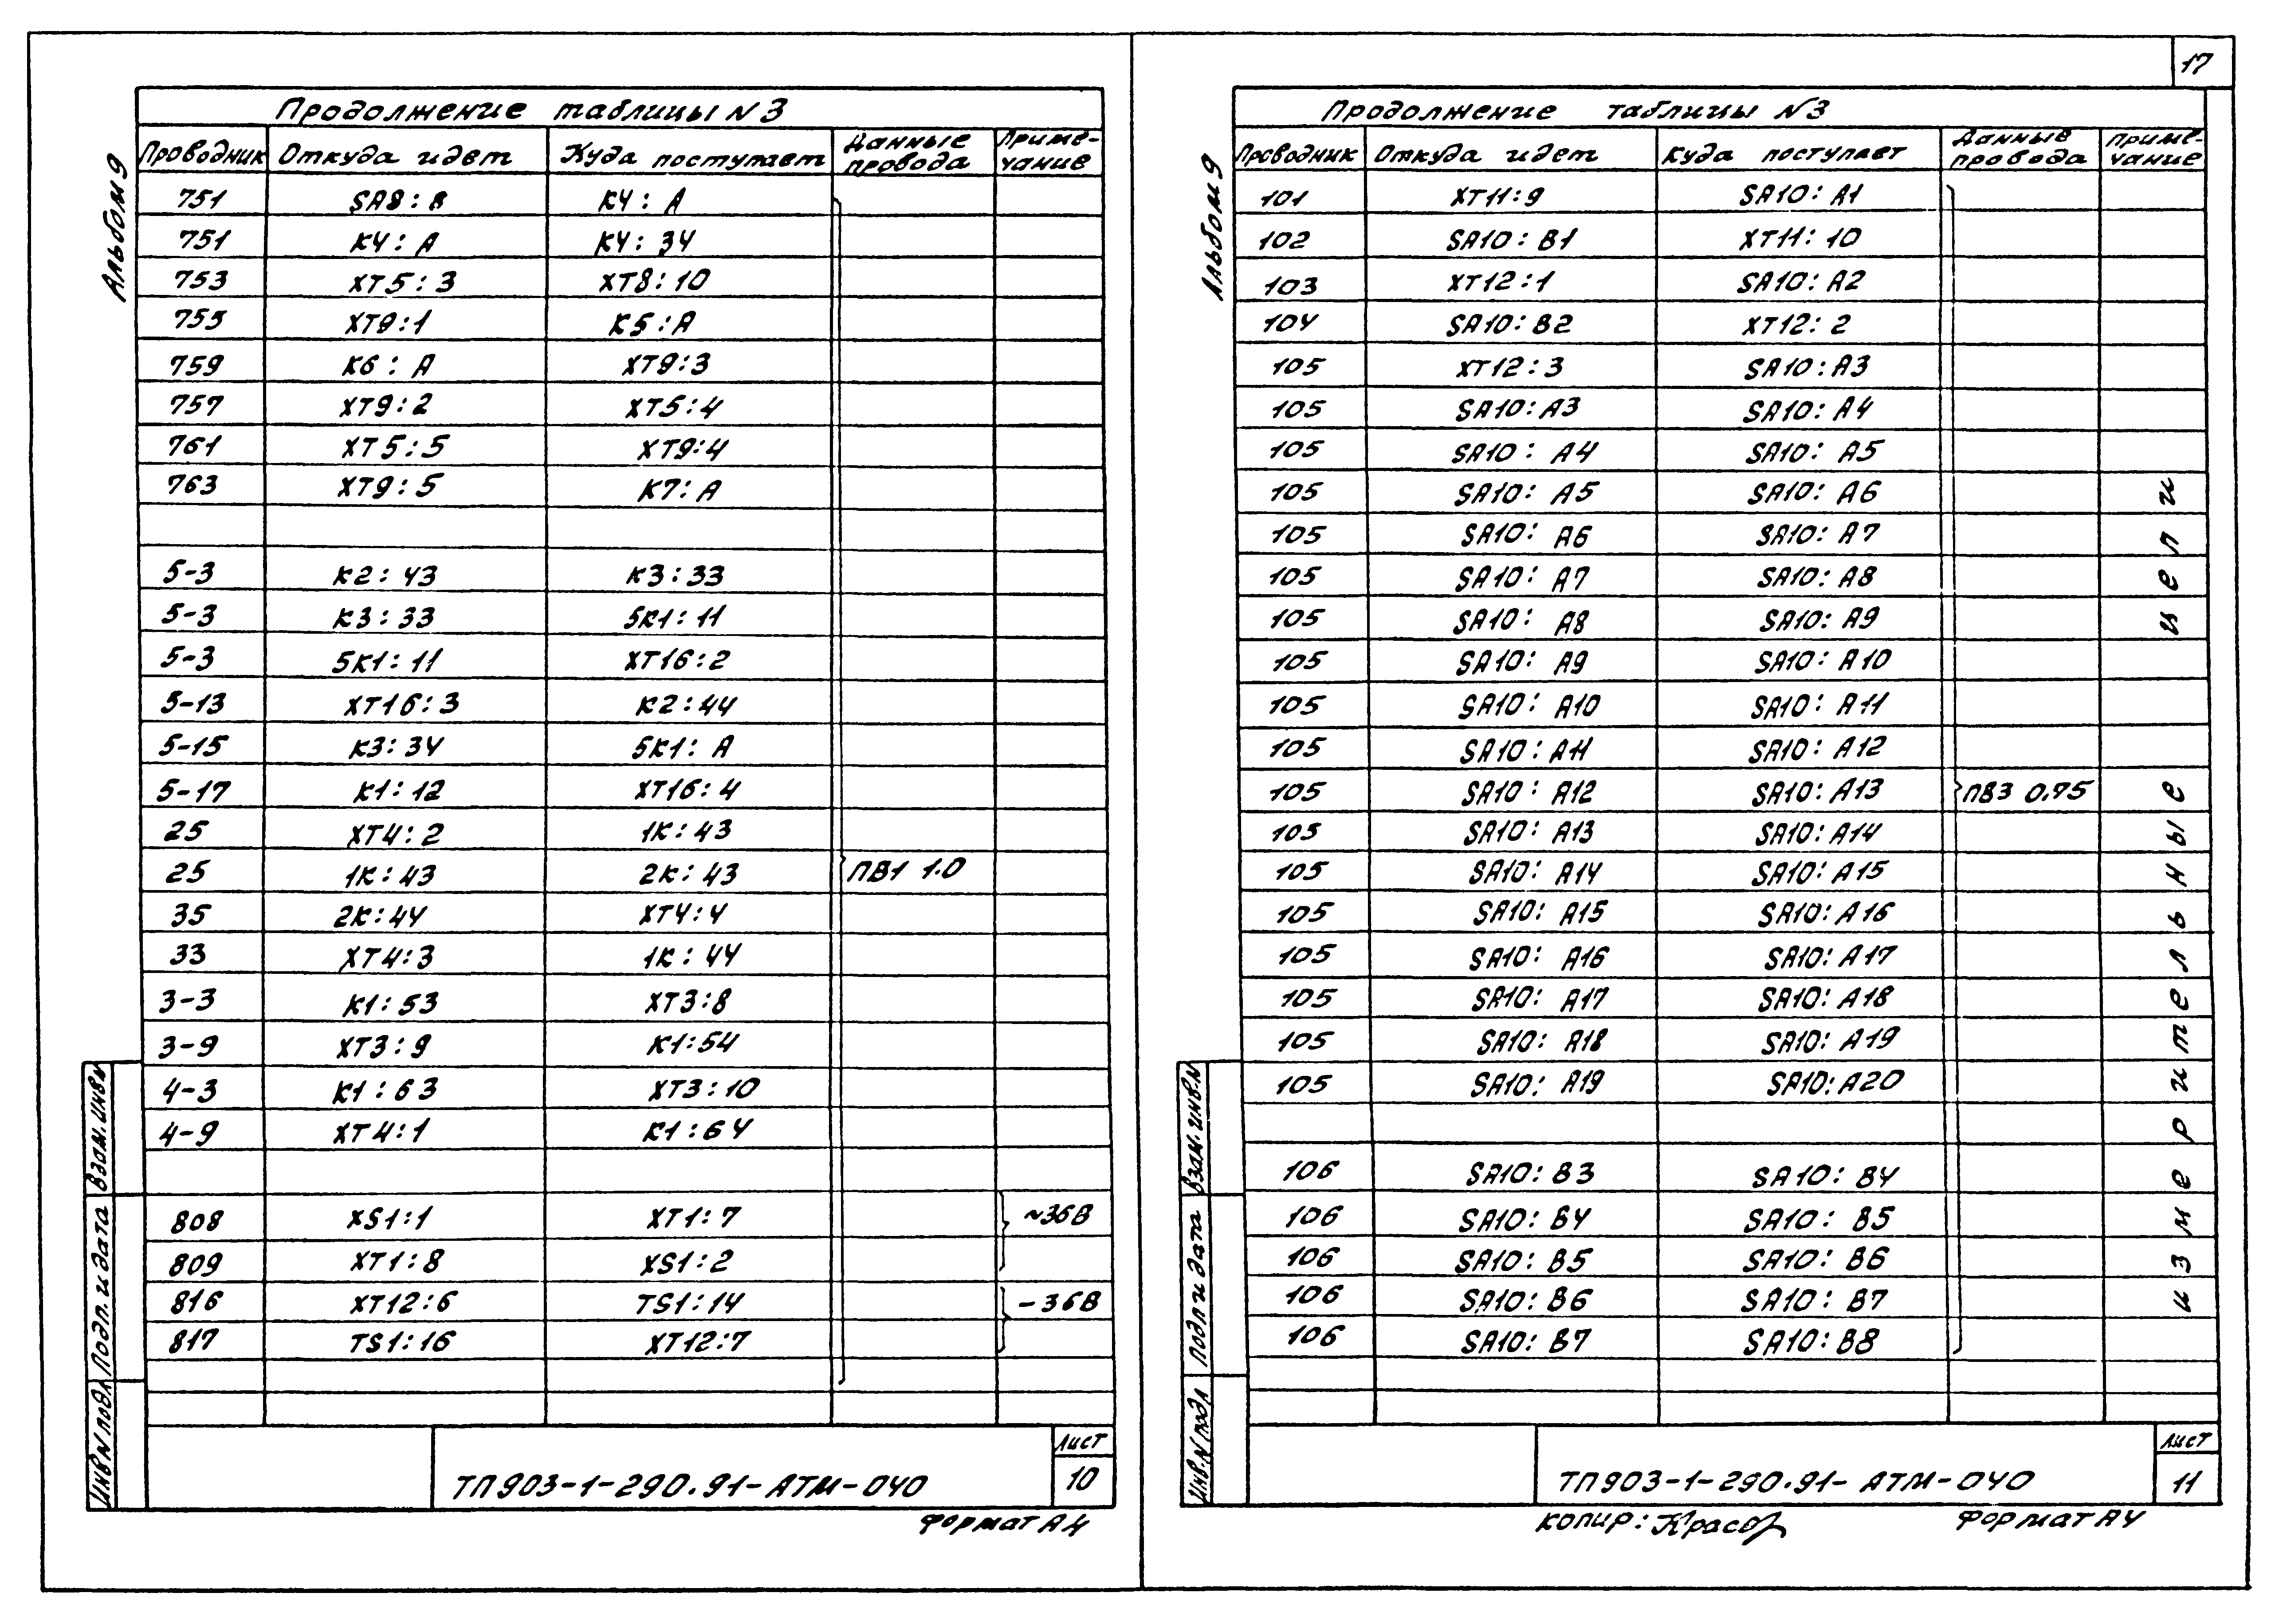 17
Альбом 9
Продолжение таблицы N 3
Проводник Откуда идет Куда поступает Данные провода Примечание
751 SA8:8 К4:А
751 К4:А К4:34
753 ХТ5:3 ХТ8:10
755 ХТ9:1 К5:А
759 К6:А ХТ9:3
757 ХТ9:2 ХТ5:4
761 ХТ5:5 ХТ9:4
763 ХТ9:5 К7:А
5-3 К2:43 К3:33
5-3 К3:33 5К1:11
5-3 5К1:11 ХТ16:2
5-13 ХТ16:3 К2:44
5-15 К3:34 5К1:А
5-17 К1:12 ХТ16:4
25 ХТ4:2 1К:43
25 1К:43 2К:43 ПВ1 1.0
35 2К:44 ХТ4:4
33 ХТ4:3 1К:44
3-3 К1:53 ХТ3:8
3-9 ХТ3:9 К1:54
4-3 К1:63 ХТ3:10
4-9 ХТ4:1 К1:64
808 XS1:1 ХТ1:7 ~36В
809 ХТ1:8 XS1:2
816 ХТ12:6 TS1:14 -36В
817 TS1:16 ХТ12:7
Взам. инв N
Подп. и дата
Инв N подл
ТП903-1-290.91-АТМ-040
Лист
10
Формат А4
Альбом 9
Продолжение таблицы N3
Проводник Откуда идет Куда поступает Данные провода Примечание
101 ХТ11:9 SA10:А1
102 SA10:В1 ХТ11:10
103 ХТ12:1 SA10:А2
104 SA10:В2 ХТ12:2
105 ХТ12:3 SA10:А3
105 SA10:А3 SA10:А4
105 SA10:А4 SA10:А5
105 SA10:А5 SA10:А6
105 SA10:А6 SA10:А7
105 SA10:А7 SA10:А8
105 SA10:А8 SA10:А9
105 SA10:А9 SA10:А10
105 SA10:А10 SA10:А11
105 SA10:А11 SA10:А12
105 SA10:А12 SA10:А13 ПВ3 0.75
105 SA10:А13 SA10:А14
105 SA10:А14 SA10:А15
105 SA10:А15 SA10:А16
105 SA10:А16 SA10:А17
105 SA10:А17 SA10:А18
105 SA10:А18 SA10:А19
105 SA10:А19 SA10:А20
106 SA10:В3 SA10:В4
106 SA10:В4 SA10:В5
106 SA10:В5 SA10:В6
106 SA10:В6 SA10:В7
106 SA10:В7 SA10:В8
измерительные цепи
Взам. инв.N
Подп и дата
Инв.N подл
ТП903-1-290.91-АТМ-040
Лист
11
Копир:
Формат А4